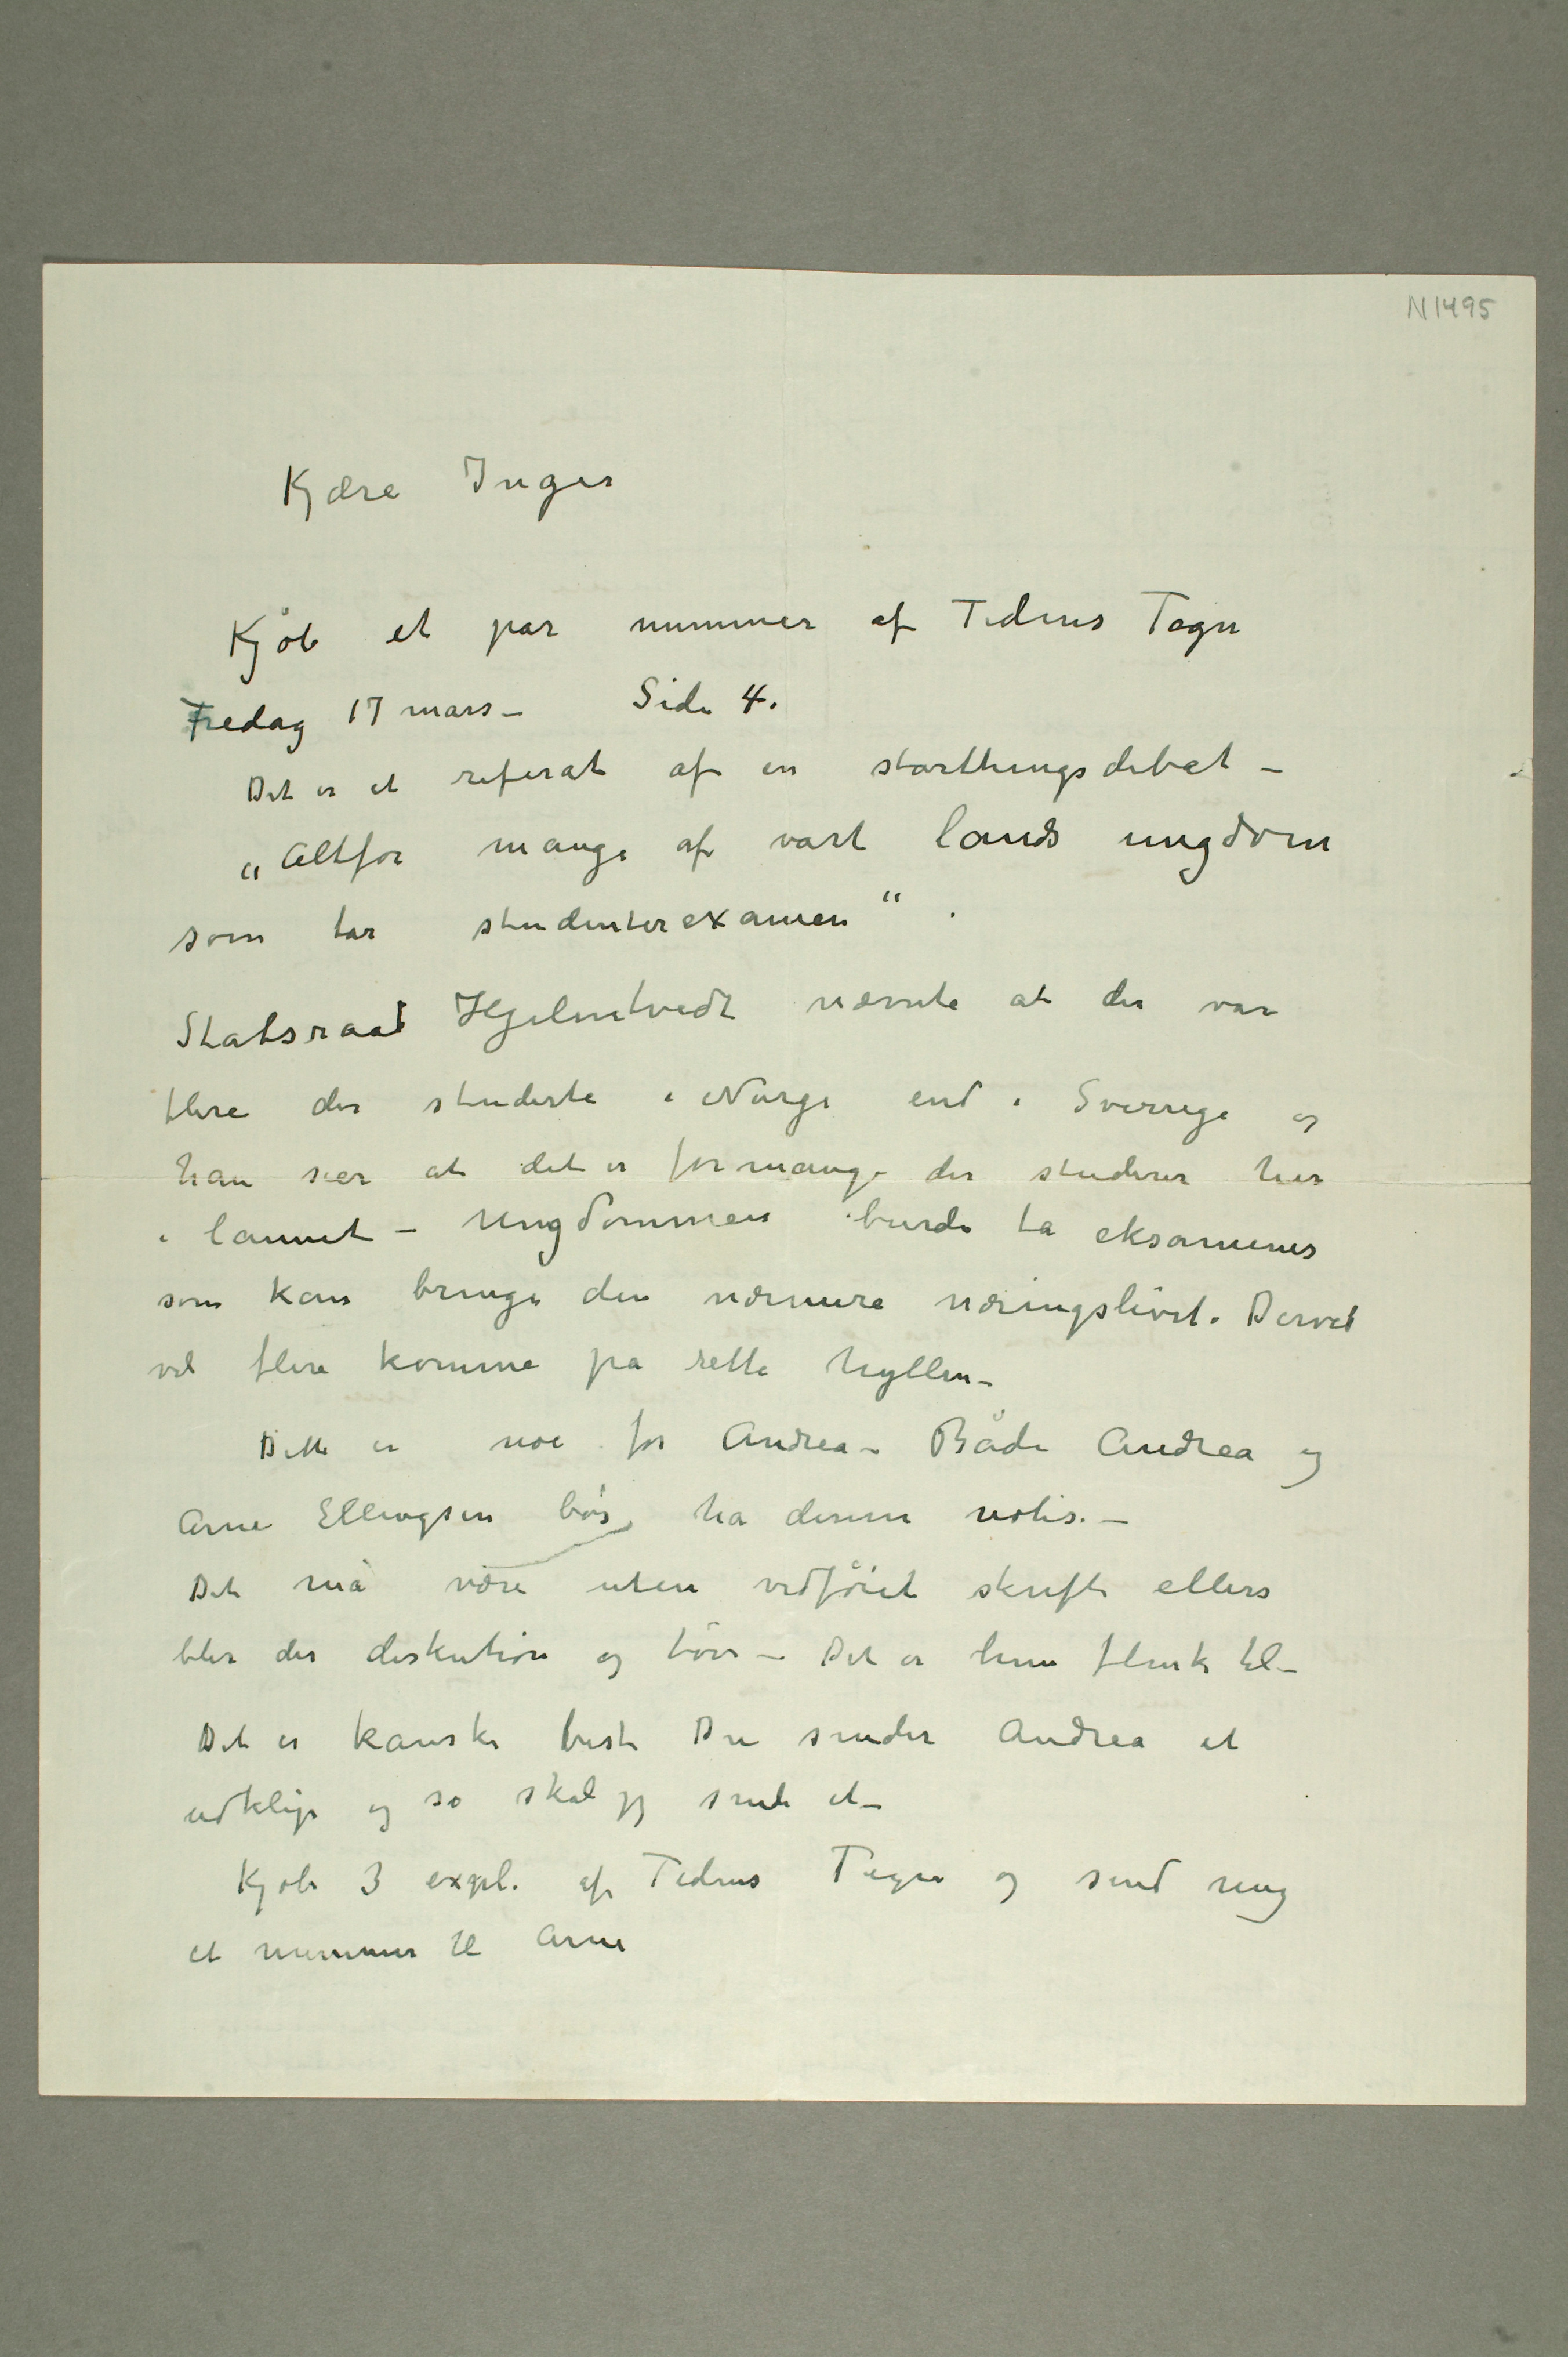 N 1495
Kjære Inger
Kjøb et par nummer af Tidens Tegn
Fredag 17 mars – Side 4.
Det er et referat af en storthingsdebat –
„Altfor mange af vort lands ungdom
som tar studenterexamen“.
Statsraad Hjelmtvedt nævnte at der var
flere der studerte i Norge end i Sverrige og
han sier at det er for mange der studerer her
i lannet – Ungdommen burde ta eksamener
som kan bringe den nærmere næringslivet. Derved
vil flere komme på rette hyllen –
Dette er noe for Andrea – Både Andrea og
Arne Ellingsen bør ha denne notis. –
Det må være uten vedføiet skrift ellers
blir der diskution og – Det er hun flink til –
Det er kanske best Du sender Andrea et
udklip og så skal jeg sende et –
Kjøb 3 expl. af Tidens Tegn og send mig
et nummer til Arne